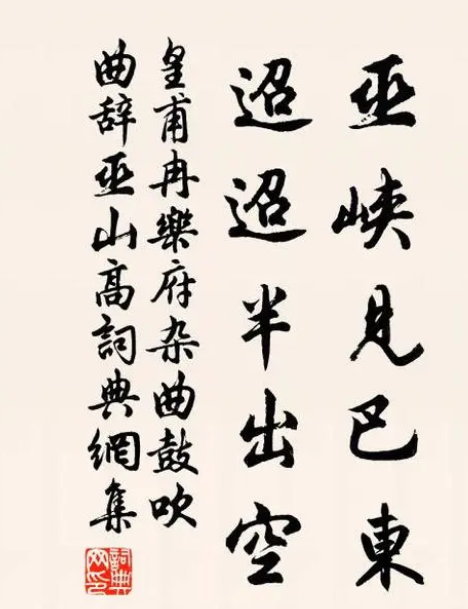 巫峡見巴東
迢迢半出空
皇甫冉樂府杂曲鼓吹
曲辞巫山高詞典網集
詞典网印